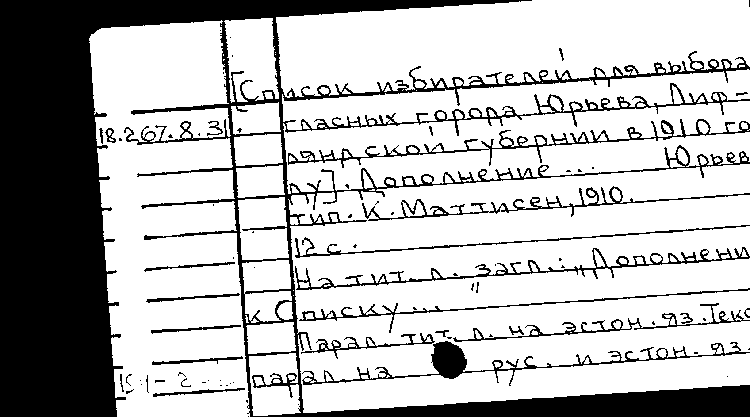 [Список избирателей для выбора
18.267.8.31. гласных города Юрьева, Лиф-
ляндской губернии в 1910 го
ду]. Дополнение... Юрьев
тип. К. Маттисен, 1910.
12 с.
На тит. л. загл.: „Дополнени
к Списку..."
Парал. тит. л. на эстон. яз. Текс
парал. на рус. и эстон. яз.